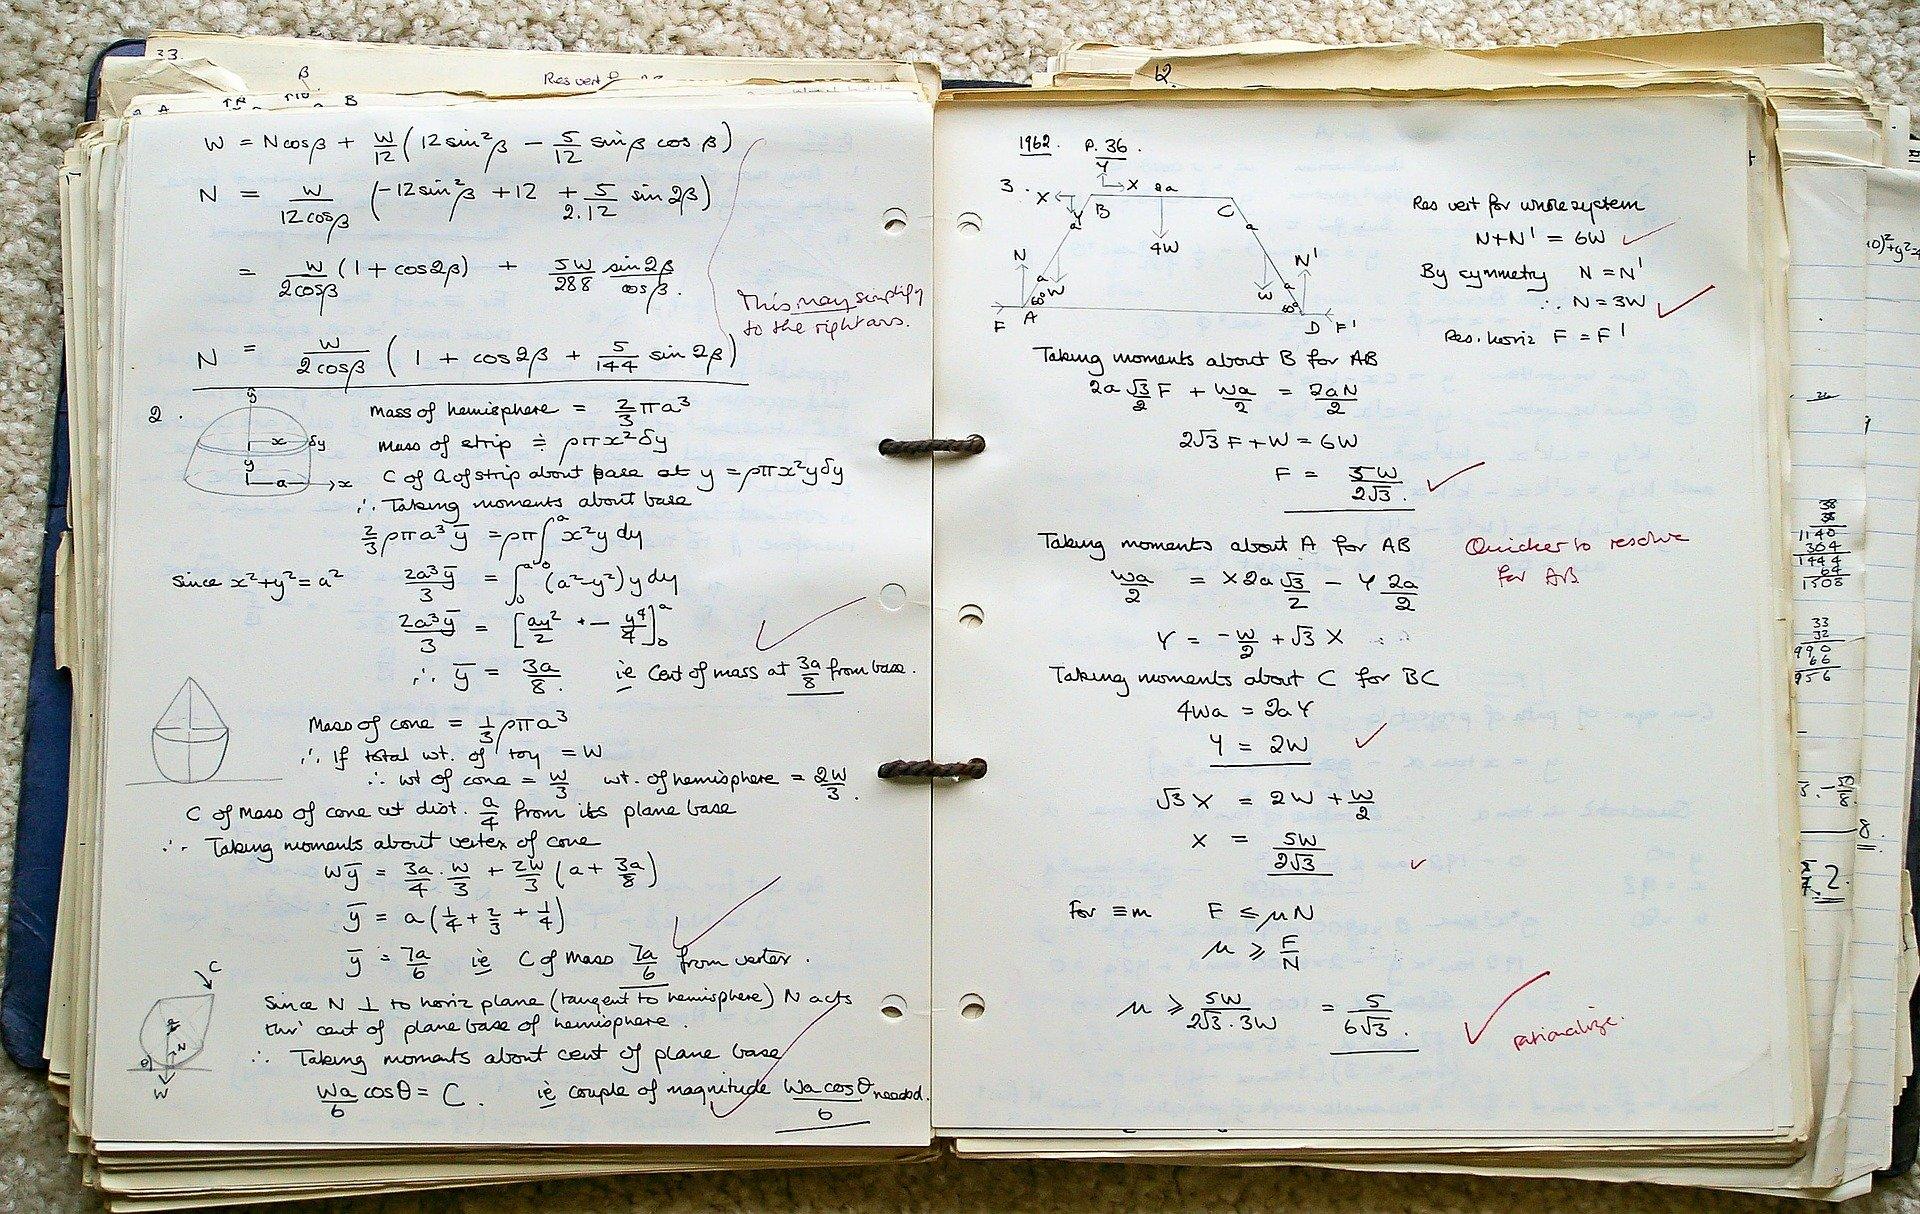 33.
β
Res vert
A
B
W = Ncosβ + W/12 (12 sin²β − 5/12 sinβ cos β)
N = W/12cosβ (−12sin²β + 12 + 5/2.12 sin 2β)
= W/2cosβ (1 + cos2β) + 5W/288 sin2β/cosβ.
This may simplify
to the right ans.
N = W/2cosβ (1 + cos2β + 5/144 sin 2β)
2.
y
x δy
y
a x
Mass of hemisphere = 2/3 πa³
Mass of strip ≑ ρπx²δy
C of G of strip about base at y = ρπx²yδy
∴ Taking moments about base
2/3 ρπa³ȳ = ρπ∫₀ᵃ x²y dy
Since x²+y²=a² 2a³ȳ/3 = ∫₀ᵃ (a²−y²) y dy
2a³ȳ/3 = [ay²/2 − y⁴/4]₀ᵃ
∴ ȳ = 3a/8. ie Cent of mass at 3a/8 from base.
Mass of cone = 1/3 ρπa³
∴ If total wt. of toy = W
∴ wt of cone = W/3 wt. of hemisphere = 2W/3.
C of Mass of cone at dist. a/4 from its plane base
∴ Taking moments about vertex of cone
Wȳ = 3a/4 . W/3 + 2W/3 (a + 3a/8)
ȳ = a(1/4 + 2/3 + 1/4)
ȳ = 7a/6 ie C of Mass 7a/6 from vertex.
C
N
θ
W
Since N ⊥ to horiz plane (tangent to hemisphere) N acts
thr' cent of plane base of hemisphere.
∴ Taking moments about cent of plane base
Wa/6 cosθ = C. ie couple of magnitude Wa cosθ/6 needed.
12
1962. P. 36.
3.
Y
X X 2a
Y B C
a a
4W
N N'
a W W a
60° 60°
F A D F'
Res vert for whole system
N+N' = 6W
By symmetry N = N'
∴ N = 3W
Res. horiz F = F'
Taking moments about B for AB
2a √3/2 F + Wa/2 = 2aN/2
2√3 F + W = 6W
F = 5W/2√3.
Taking moments about A for AB
Quicker to resolve
for AB
Wa/2 = X 2a √3/2 − Y 2a/2
Y = −W/2 + √3 X
Taking moments about C for BC
4Wa = 2aY
Y = 2W
√3 X = 2W + W/2
X = 5W/2√3
For ≡m F ≤ μN
μ ⩾ F/N
μ ⩾ 5W/2√3 . 3W = 5/6√3.
rationalize.
38
38
1140
304
1444
64
1508
33
32
990
66
956
8.
2.